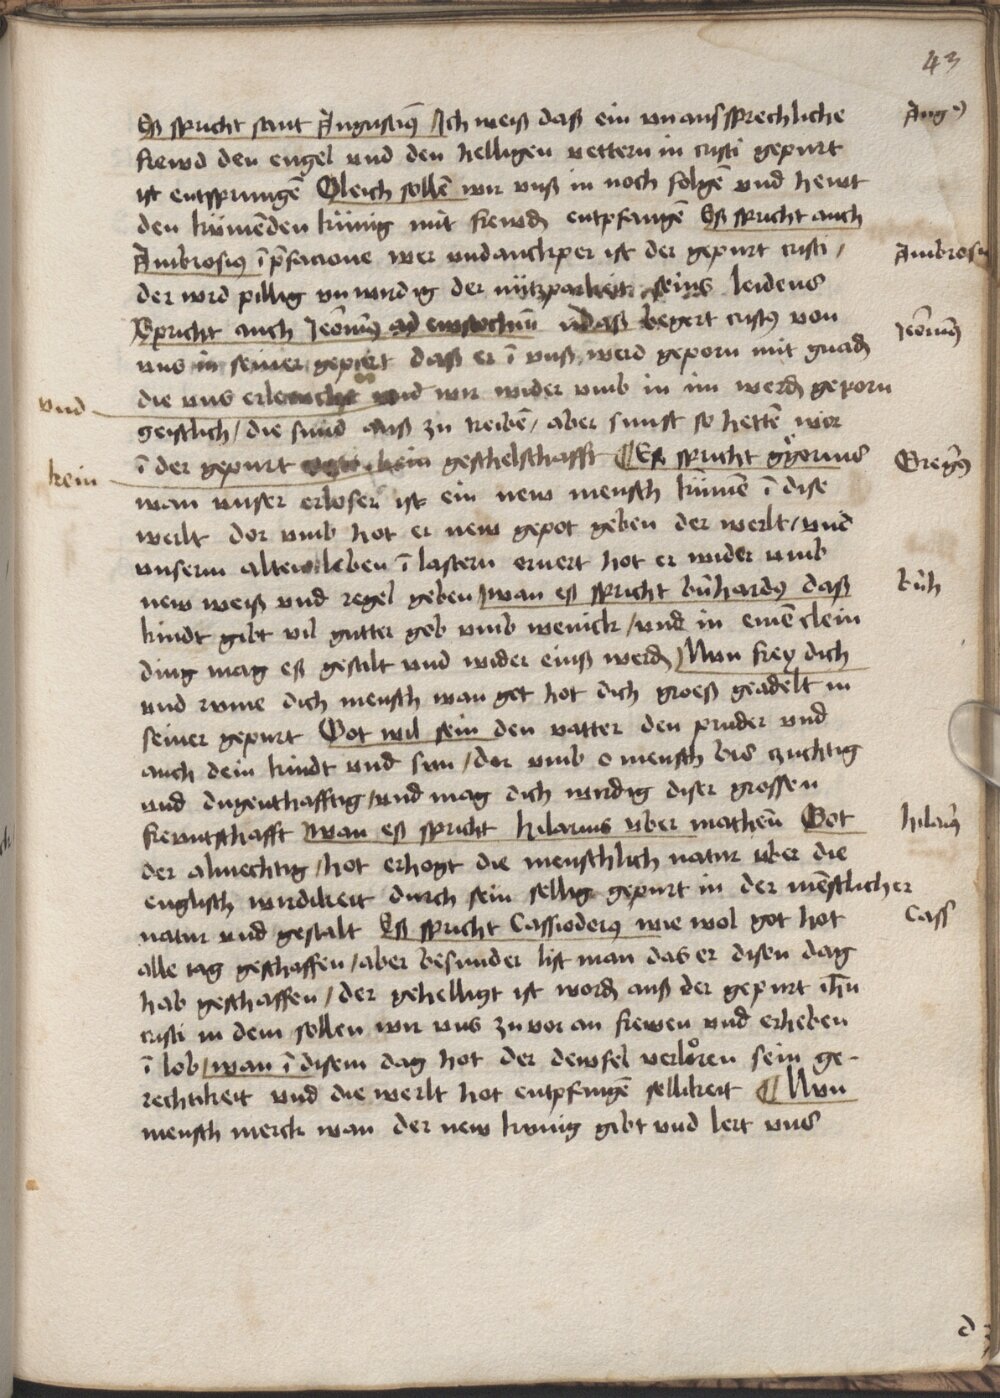 43
Eß spricht sant Augustiq̄ Ich weiß daß ein vn aus sprechliche
Aug⁹
frewd den engel vnd den helligen vettern in cristi gepurt
ist entsprungē Gleich sollē wir vnß in noch folgē vnd hewt
den kumēden kunig mit frewdɜ entpfangē Eß spricht auch
Ambrosiq ī p̄facione wer vndanckper ist der gepurt cristi /
Ambrosiq
der wrd pillig vn wirdig der nutzparkeit seins leidens
Spricht auch Jeōnimq̄ ad ewstochiū vn̄ daß begert cristq von
Jeōnimq̄
vns in seiner gepurt daß er ī vnß werd geporn mit gnadɜ
die vns erleucht vnd wir wider vmb in im werdɜ geporn
vnd
geistlich / die sund auß zu treibē / aber sunst so hettē wir
ī der gepurt cristi kein geschelschafft ¶ Eß spricht gg̊orius
kein
Gregq̄
wan vnser erloser ist ein new mensch kūmē ī dise
werlt dor vmb hot er new gepot geben der werlt / vnd
vnserm alten leben ī lastern ernert hot er wider vmb
new weiß vnd regel geben / wan eß spricht bn̄hardq daß
bn̄h
kindt gibt vil gutter gob vmb wenick / vnd in einē clein
ding mag eß gestilt vnd wider einß werdɜ / Nvn frey dich
vnd rvme dich mensch wan got hot dich groeß geadelt in
seiner gepurt Got wil sein den vatter den pruder vnd
auch dein kindt vnd sun / dar vmb o mensch bis czuchtig
vnd dugenthafftig / vnd mag dich wirdig diser grossen
frevntschafft wan eß spricht hilarius vber matheū Got
hilariq̄
der almechtig / hot erhogt die menschlich natur vber die
englisch wirdikeit durch sein sellig gepurt in der mēstlicher
natur vnd gestalt Eß spricht Cassioderq wie wol got hot
Cass
alle tag geschaffen / aber besunder list man das er disen dag
hab geschaffen / der gehelligt ist wordɜ auß der gepurt ih̄u
cristi in dem sollen wir vns zu vor an frewen vnd erheben
ī lob / wan ī disem dag hot der dewfel verloren sein ge-
rechtikeit vnd die werlt hot entpfangē sellikeit ¶ Nvn
mensch merck wan der new kvnig gibt vnd lert vns